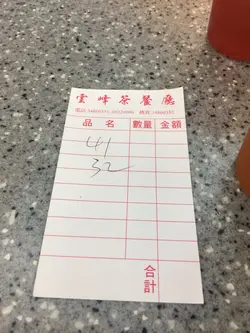 雲峰茶餐廳
品名 數量 金額
41
32
合計